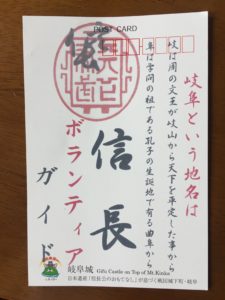 POST CARD
岐阜という地名は
岐は周の文王が岐山から天下を平定した事から
阜は学問の祖である孔子の生誕地で有る曲阜から
信長
天下布武
ボランティア
ガイド
岐阜城 Gifu Castle on Top of Mt.Kinka
日本遺産「信長公のおもてなし」が息づく戦国城下町・岐阜